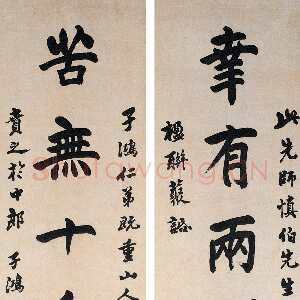 此先師慎伯先生
幸有兩
子鴻仁弟既重山人
苦無十
賁之於中郎 子鴻
Shufawang.CN